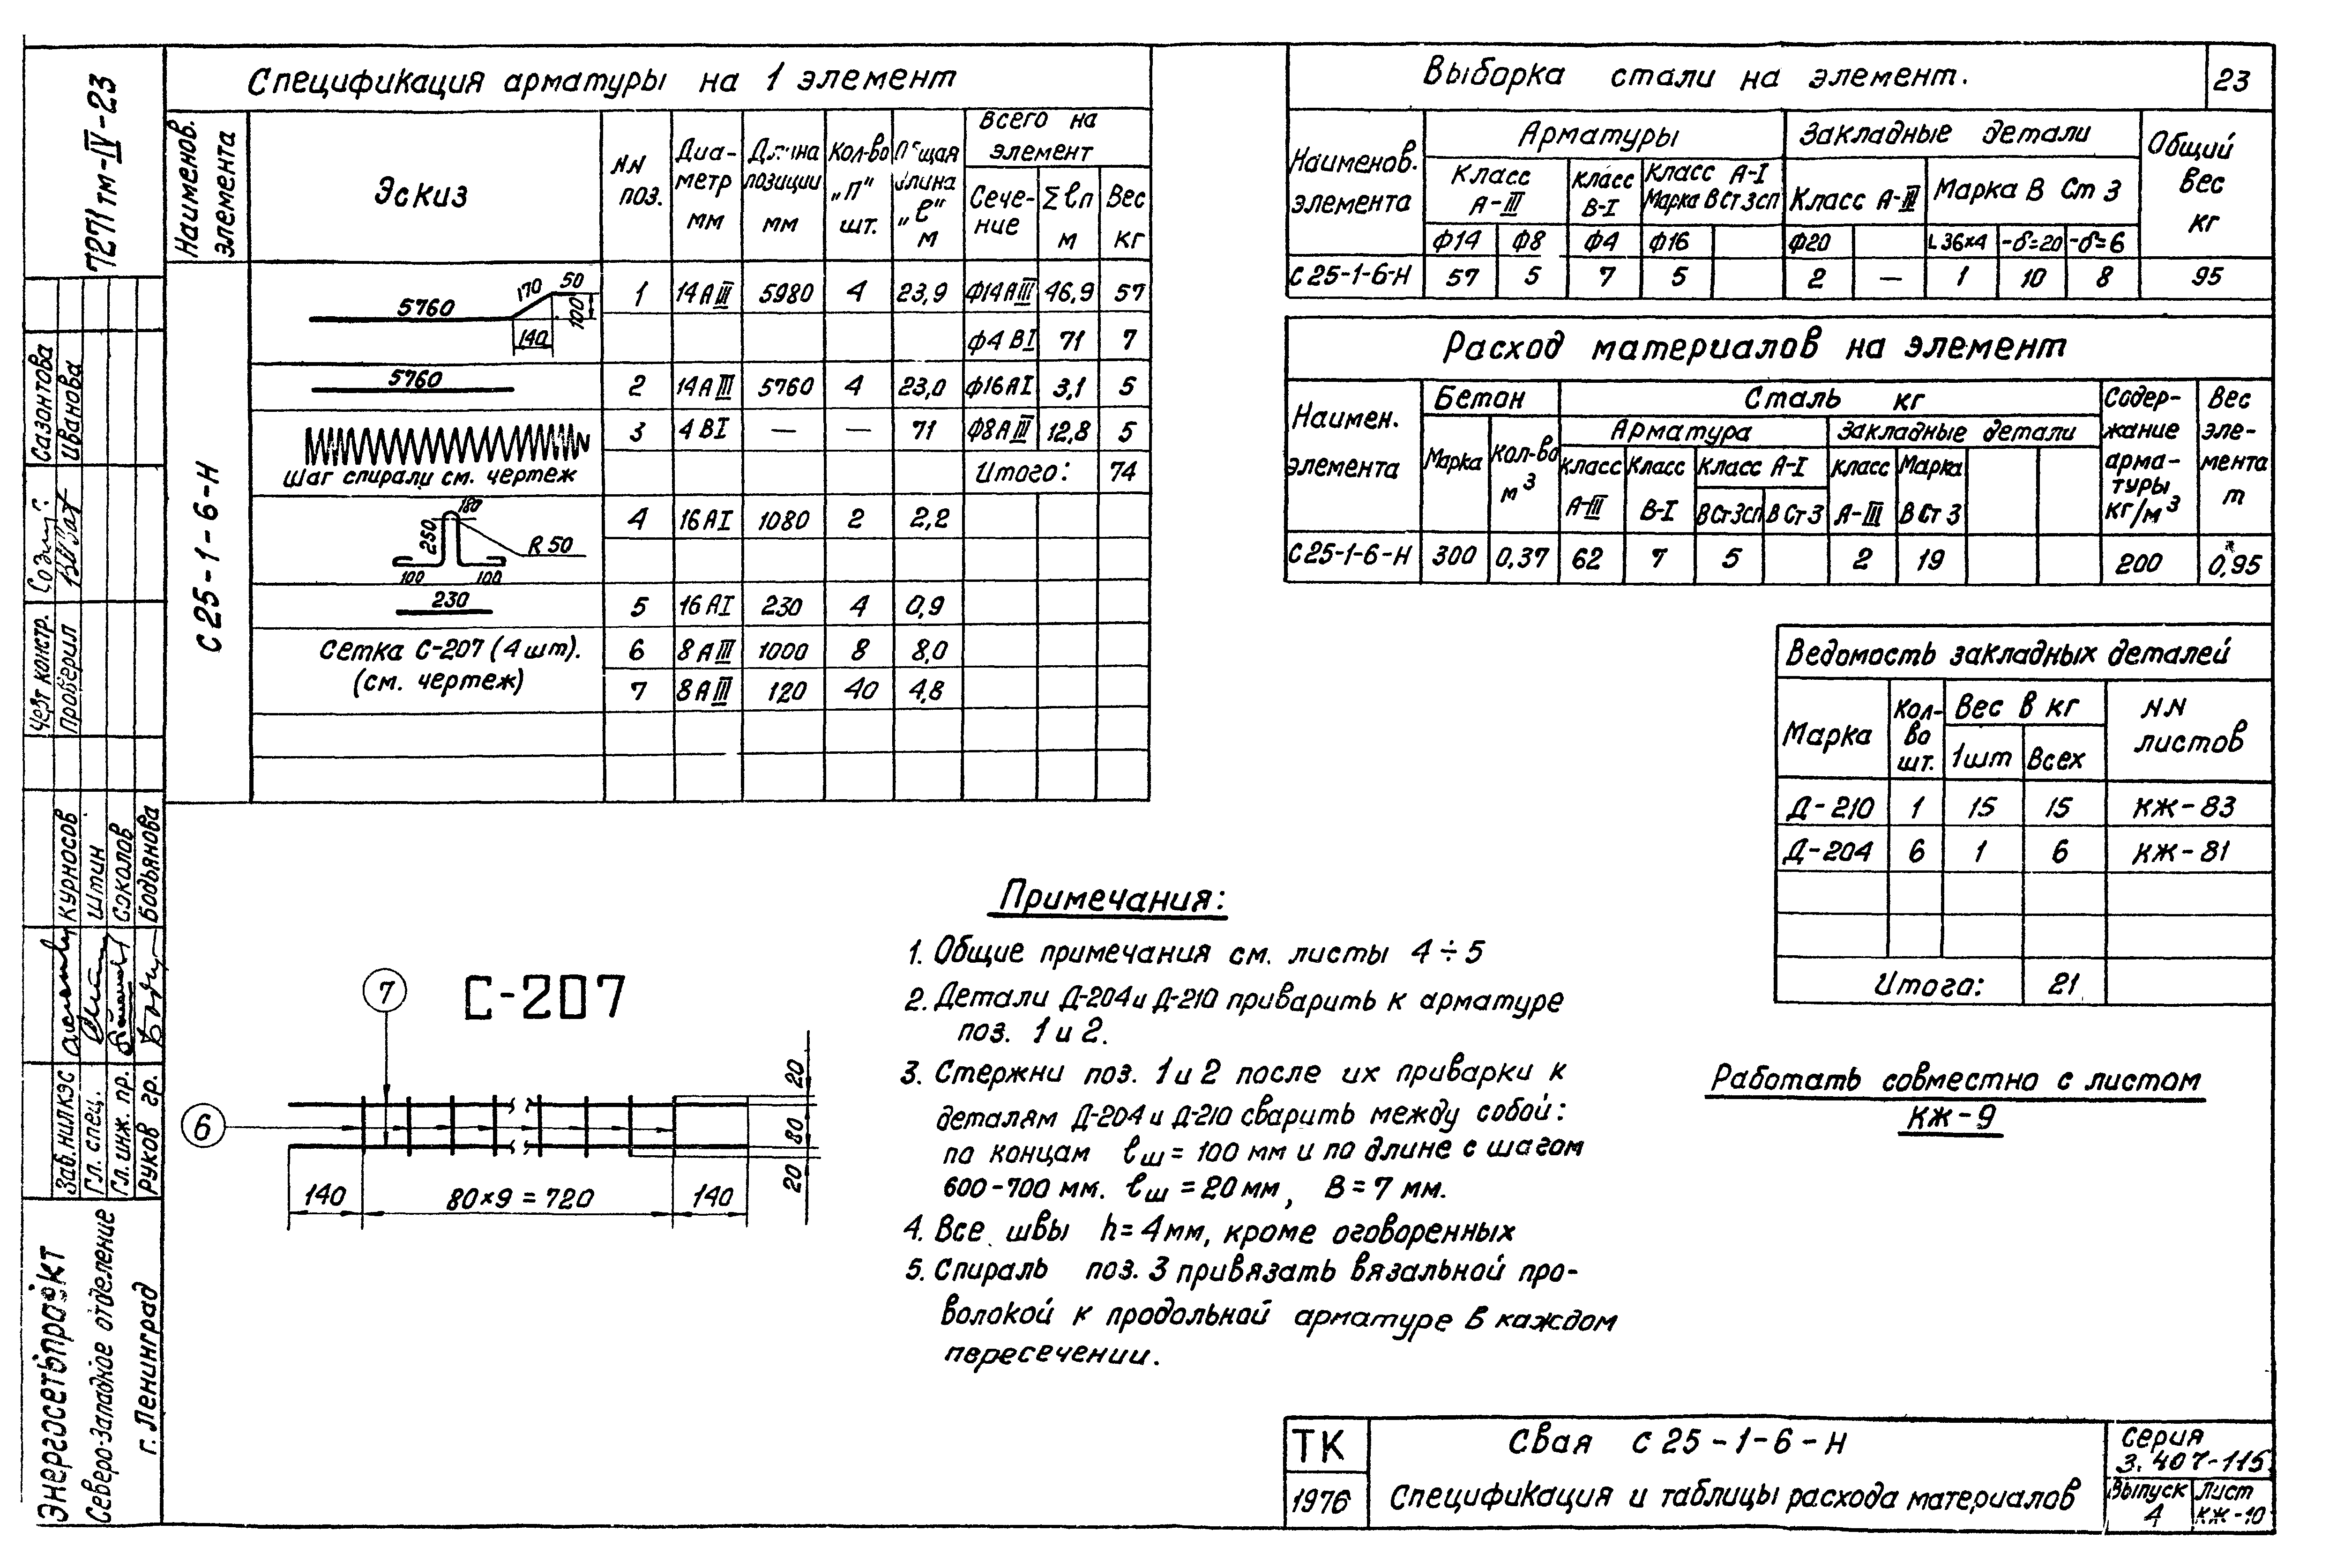 Спецификация арматуры на 1 элемент
Наименов. элемента
Эскиз
NN поз.
Диаметр мм
Длина позиции мм
Кол-во „п" шт.
Общая длина „ℓ" м
Всего на элемент
Сечение
Σℓп м
Вес кг
С 25-1-6-Н
5760 170 50 100 140
1 14AIII 5980 4 23,9 Ф14AIII 46,9 57
Ф4 BI 71 7
5760
2 14AIII 5760 4 23,0 Ф16AI 3,1 5
3 4 BI — — 71 Ф8AIII 12,8 5
Шаг спирали см. чертеж
Итого: 74
180 250 R 50 100 100
4 16AI 1080 2 2,2
230
5 16 AI 230 4 0,9
Сетка С-207 (4 шт).
(см. чертеж)
6 8 AIII 1000 8 8,0
7 8 AIII 120 40 4,8
Выборка стали на элемент.
23
Наименов. элемента
Арматуры
Закладные детали
Общий вес кг
Класс А-III
Класс В-I
Класс А-I Марка ВСт3сп
Класс А-III
Марка В Ст 3
Ф14 Ф8 Ф4 Ф16 Ф20 L 36×4 -δ=20 -δ=6
С 25-1-6-Н 57 5 7 5 2 — 1 10 8 95
Расход материалов на элемент
Наимен. элемента
Бетон
Сталь кг
Содержание арматуры кг/м³
Вес элемента т
Марка
Кол-во м³
Арматура
Закладные детали
Класс А-III
Класс В-I
Класс А-I
В Ст 3сп
В Ст 3
Класс А-III
Марка В Ст 3
С 25-1-6-Н 300 0,37 62 7 5 2 19 200 0,95
Ведомость закладных деталей
Марка
Кол-во шт.
Вес в кг
1шт
Всех
NN листов
Д-210 1 15 15 КЖ-83
Д-204 6 1 6 КЖ-81
Итого: 21
Работать совместно с листом
КЖ-9
С-207
7
6
20
80
20
140 80×9=720 140
Примечания:
1. Общие примечания см. листы 4÷5
2. Детали Д-204 и Д-210 приварить к арматуре
поз. 1 и 2.
3. Стержни поз. 1 и 2 после их приварки к
деталям Д-204 и Д-210 сварить между собой:
по концам ℓш=100 мм и по длине с шагом
600-700 мм. ℓш=20 мм, В=7 мм.
4. Все швы h=4мм, кроме оговоренных
5. Спираль поз. 3 привязать вязальной про-
волокой к продольной арматуре в каждом
пересечении.
ТК
1976
Свая С 25-1-6-Н
Спецификация и таблицы расхода материалов
Серия
3.407-115
Выпуск 4
Лист КЖ-10
7271тм-IV-23
Сазонтова
Иванова
констр.
Проверил
Курносов
Штин
Соколов
Бодьянова
Зав.НИЛКЭС
Гл. спец.
Гл.инж. пр.
Руков гр.
Энергосетьпроект
Северо-Западное отделение
г. Ленинград